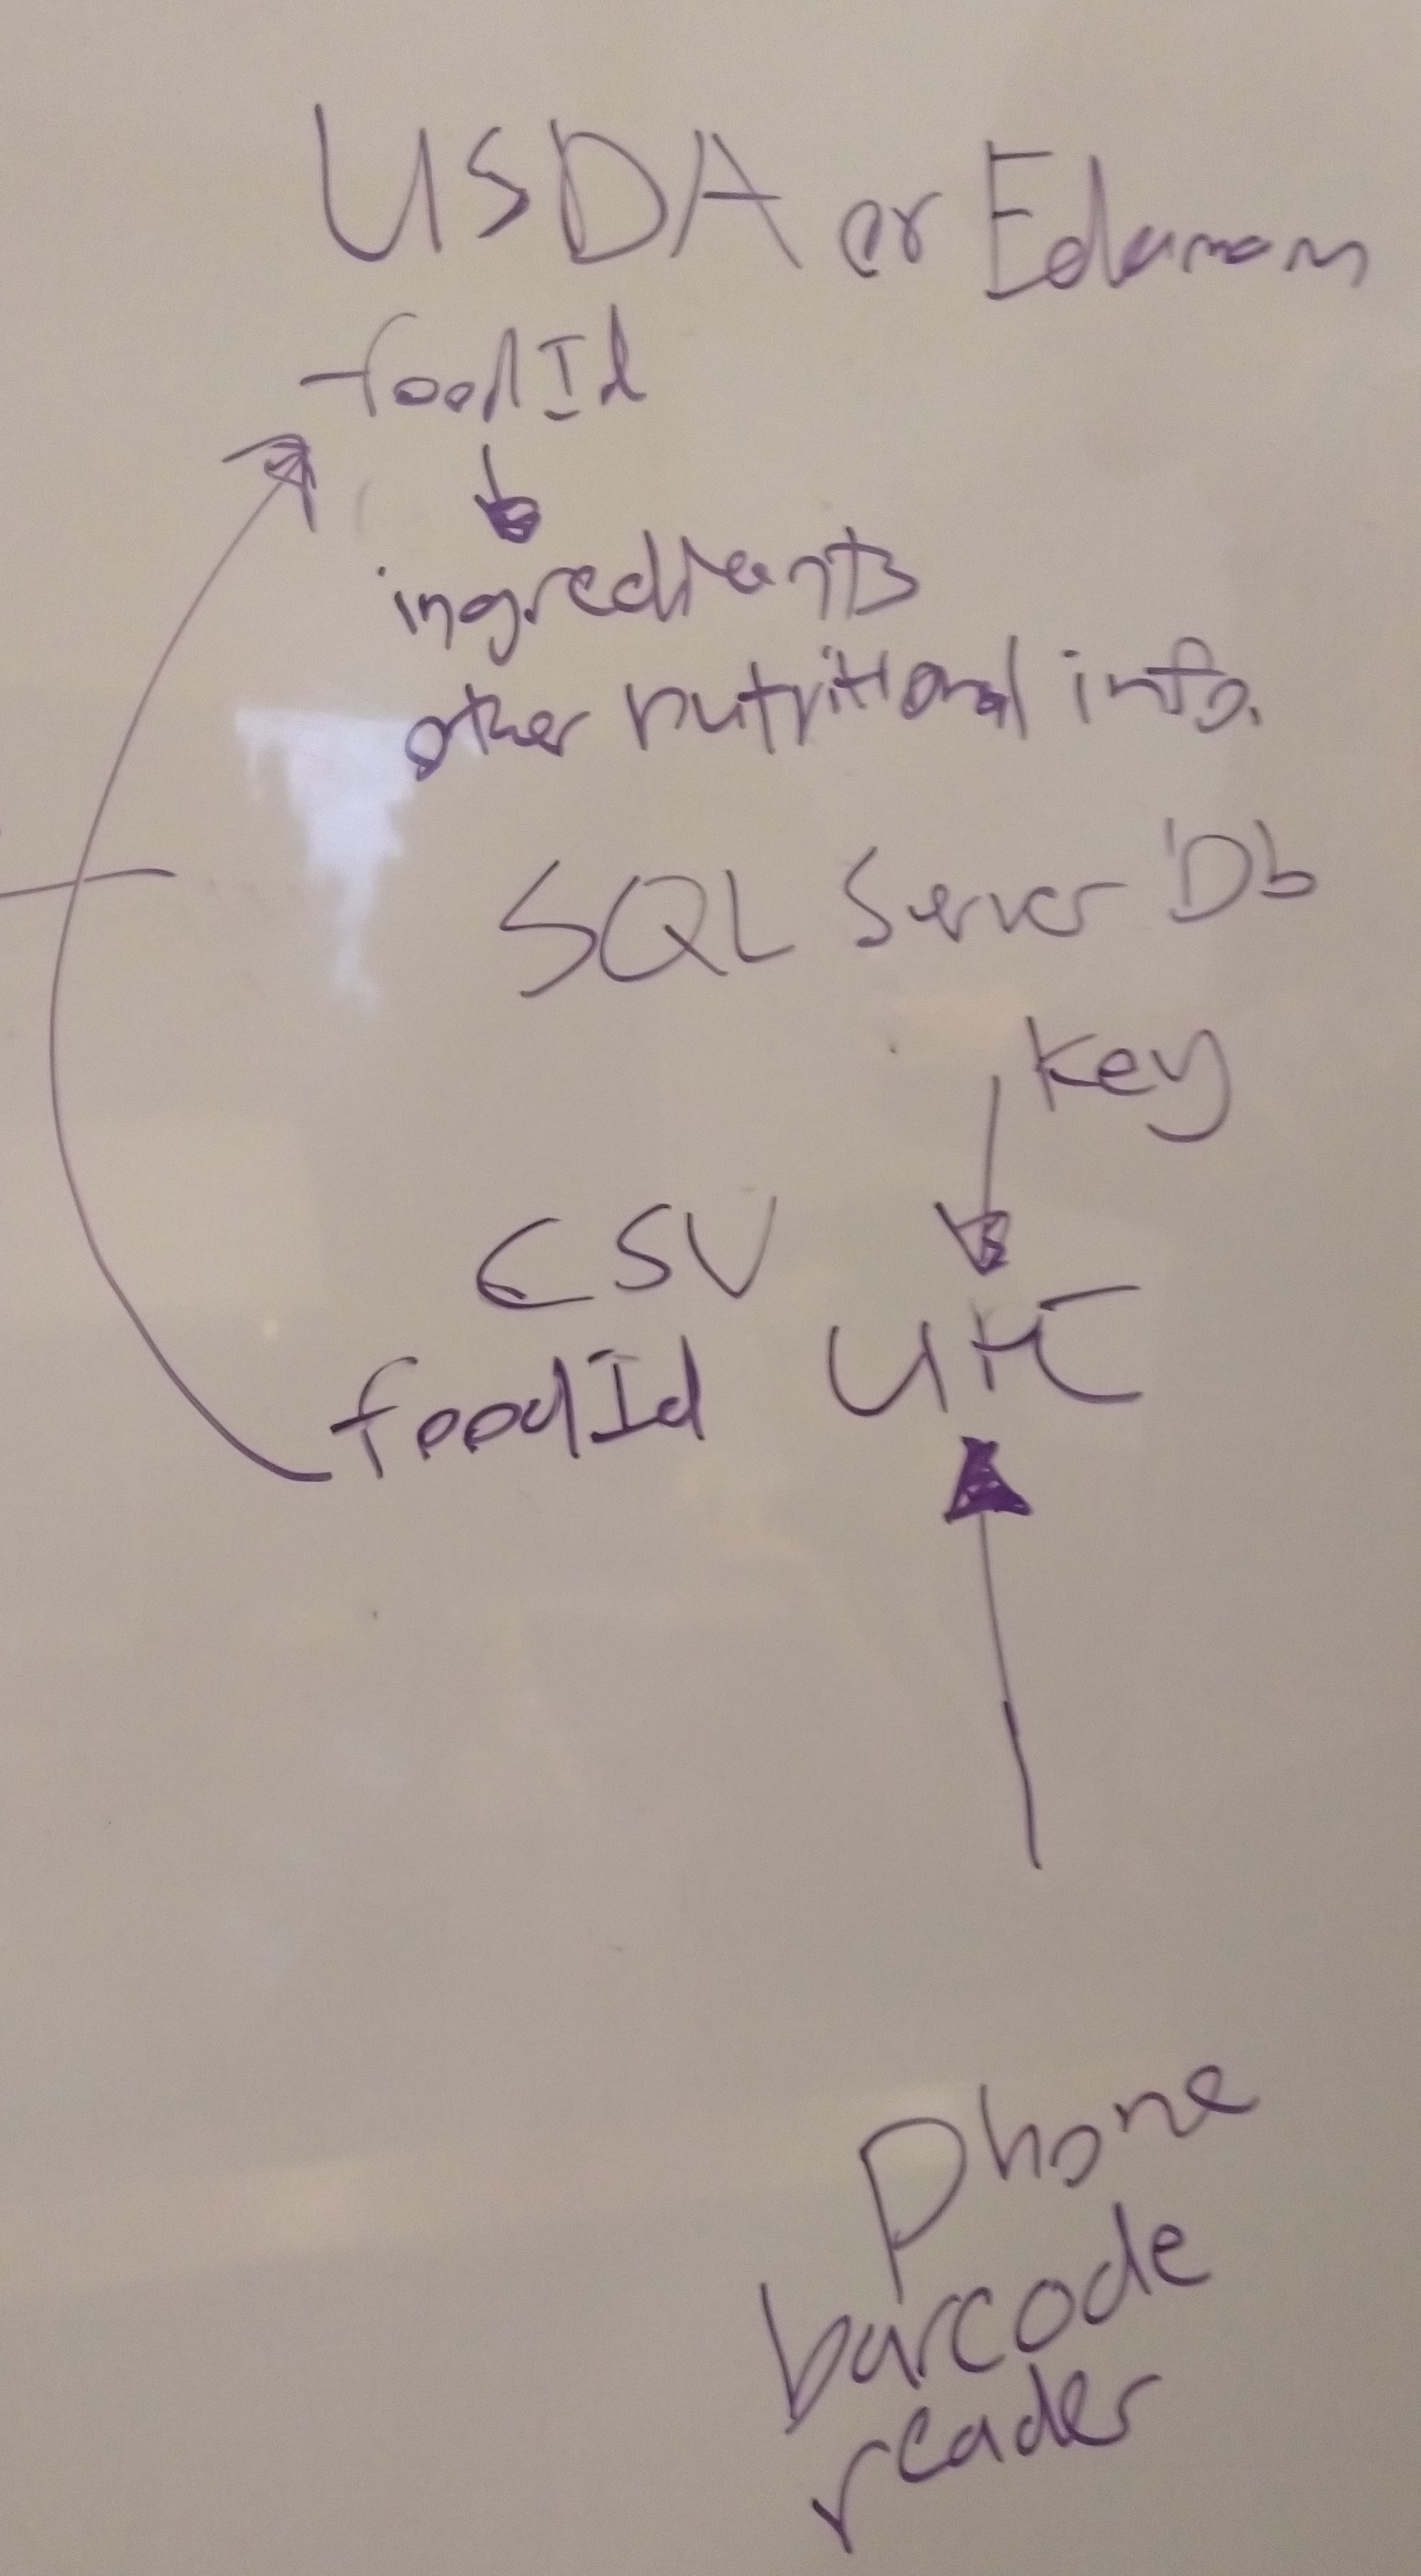 USDA or Edamam
foodId
ingredients
other nutritional info.
SQL Server Db
key
CSV
foodId UPC
Phone
barcode
reader